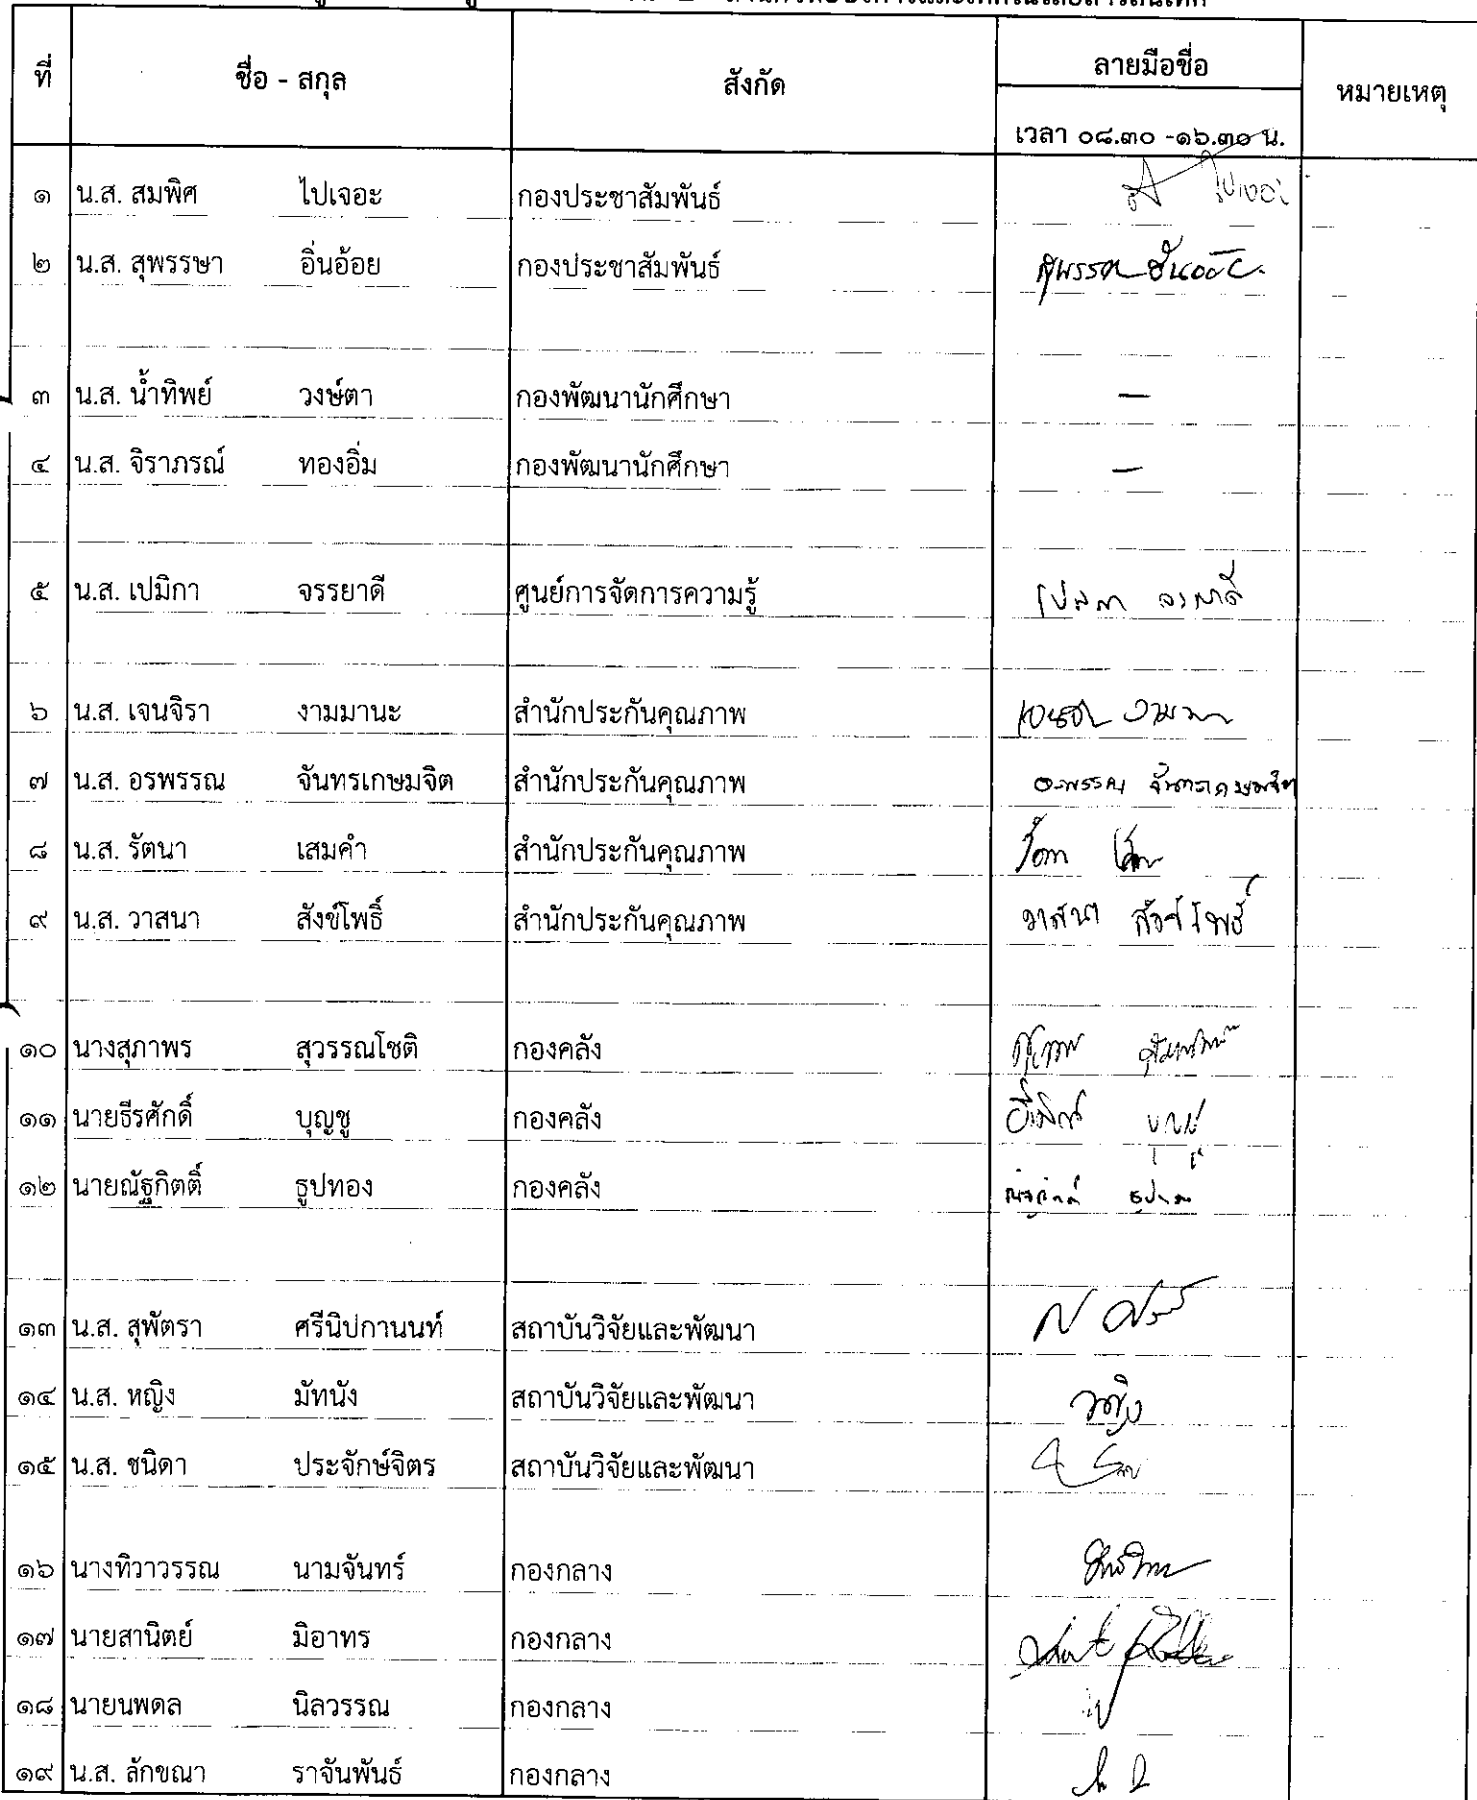 ที่ ชื่อ - สกุล สังกัด ลายมือชื่อ หมายเหตุ
เวลา ๐๘.๓๐ -๑๖.๓๐ น.
๑ น.ส. สมพิศ ไปเจอะ กองประชาสัมพันธ์
๒ น.ส. สุพรรษา อิ่นอ้อย กองประชาสัมพันธ์
๓ น.ส. น้ำทิพย์ วงษ์ตา กองพัฒนานักศึกษา —
๔ น.ส. จิราภรณ์ ทองอิ่ม กองพัฒนานักศึกษา —
๕ น.ส. เปมิกา จรรยาดี ศูนย์การจัดการความรู้
๖ น.ส. เจนจิรา งามมานะ สำนักประกันคุณภาพ
๗ น.ส. อรพรรณ จันทรเกษมจิต สำนักประกันคุณภาพ อรพรรณ จันทรเกษมจิต
๘ น.ส. รัตนา เสมคำ สำนักประกันคุณภาพ
๙ น.ส. วาสนา สังข์โพธิ์ สำนักประกันคุณภาพ วาสนา สังข์โพธิ์
๑๐ นางสุภาพร สุวรรณโชติ กองคลัง
๑๑ นายธีรศักดิ์ บุญชู กองคลัง
๑๒ นายณัฐกิตติ์ ธูปทอง กองคลัง
๑๓ น.ส. สุพัตรา ศรีนิปกานนท์ สถาบันวิจัยและพัฒนา
๑๔ น.ส. หญิง มัทนัง สถาบันวิจัยและพัฒนา หญิง
๑๕ น.ส. ชนิดา ประจักษ์จิตร สถาบันวิจัยและพัฒนา
๑๖ นางทิวาวรรณ นามจันทร์ กองกลาง
๑๗ นายสานิตย์ มิอาทร กองกลาง
๑๘ นายนพดล นิลวรรณ กองกลาง
๑๙ น.ส. ลักขณา ราจันพันธ์ กองกลาง